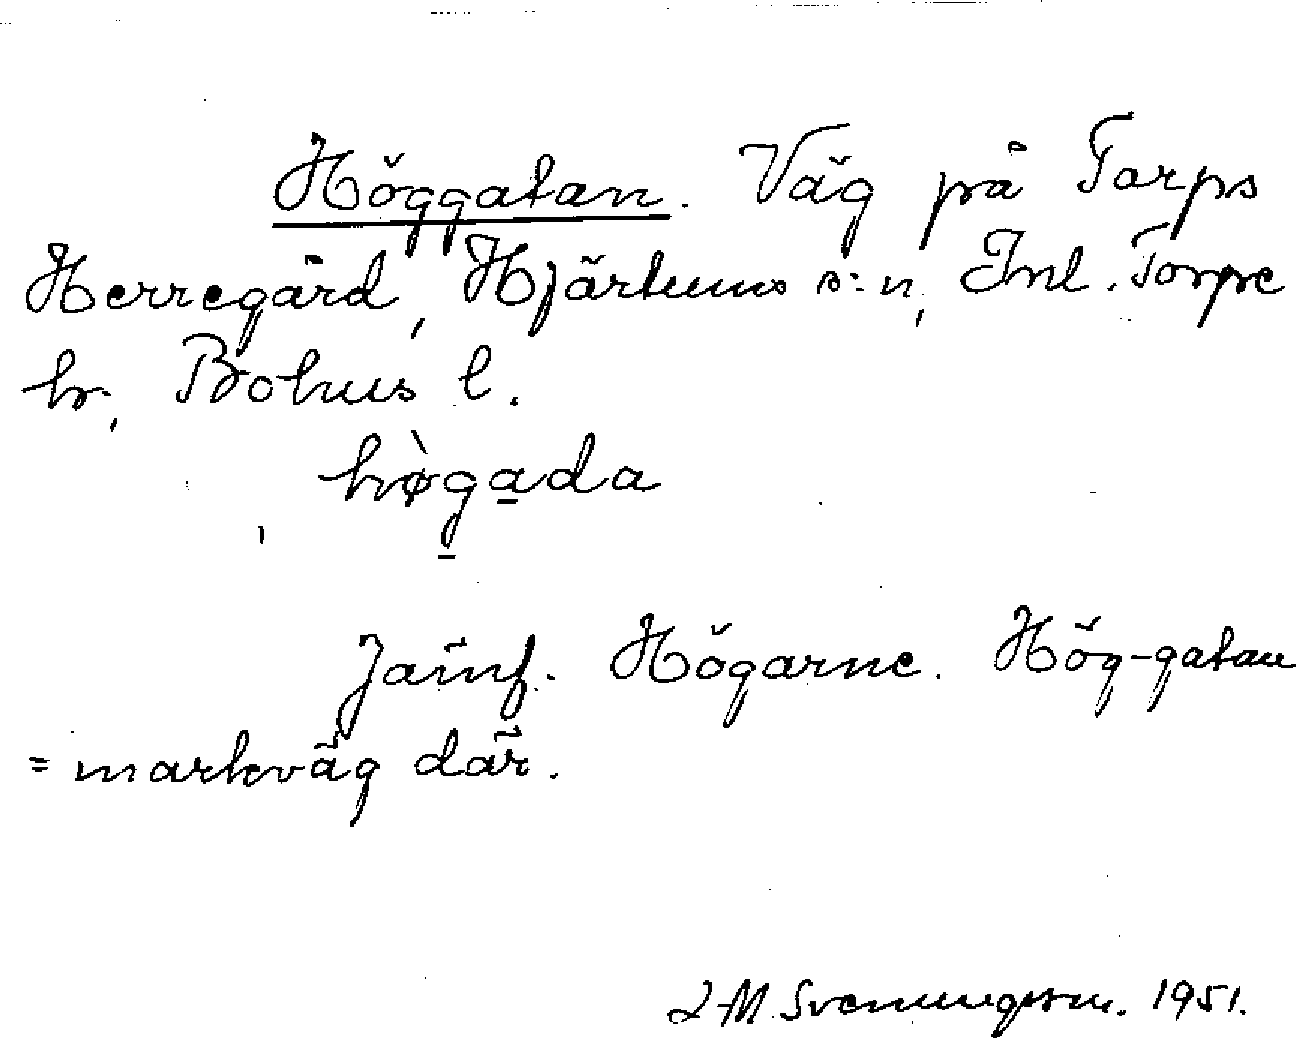 Höggatan. Väg på Torps
Herregård, Hjärtums s:n, Inl. Torpe
hr, Bohus l.
hø̀gada
Jämf. Högarne. Hög-gatan
= markväg där.
J-M. Svenungsson. 1951.